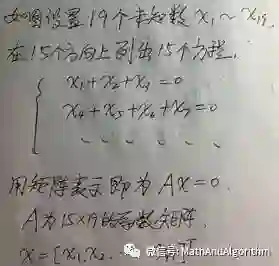 如图设置19个未知数 x₁~x₁₉
在15个方向上列出15个方程.
x₁+x₂+x₃=0
x₄+x₅+x₆+x₇=0
用矩阵表示即为 AX=0.
A为15×19的系数矩阵.
X=[x₁,x₂
微信号: MathAndAlgorithm